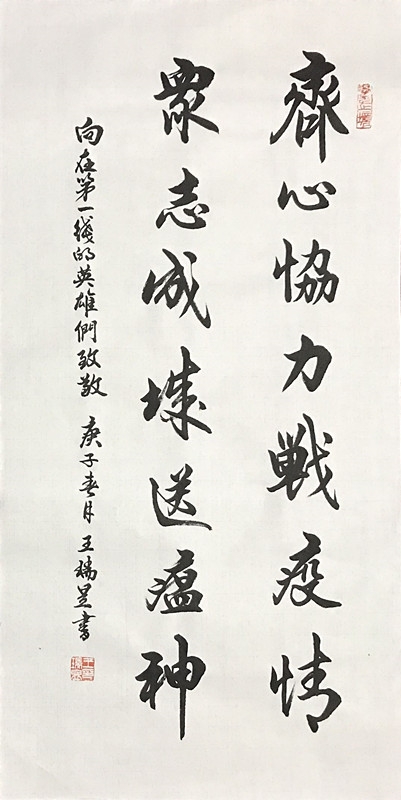 齊心協力戰疫情
衆志成城送瘟神
向在第一綫的英雄們致敬 庚子春月 王瑞昱書